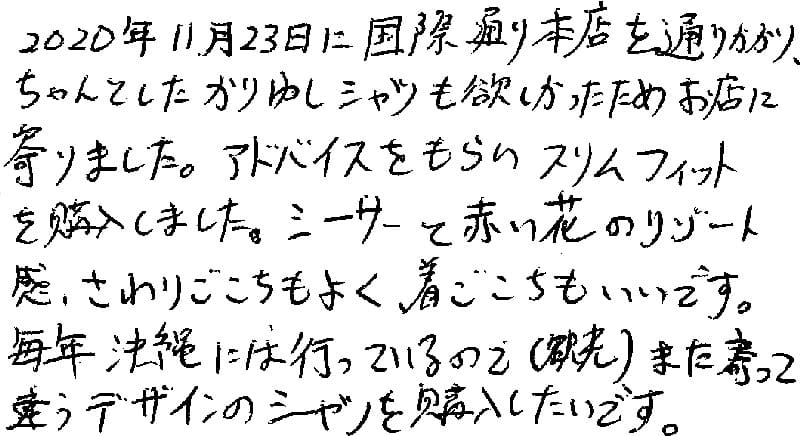 2020年11月23日に国際通り本店を通りかかり、
ちゃんとしたかりゆしシャツも欲しかったためお店に
寄りました。アドバイスをもらい スリムフィット
を購入しました。シーサーと赤い花のリゾート
感、さわりごこちもよく、着ごこちもいいです。
毎年 沖縄には行っているので(観光)また寄って
違うデザインのシャツを購入したいです。